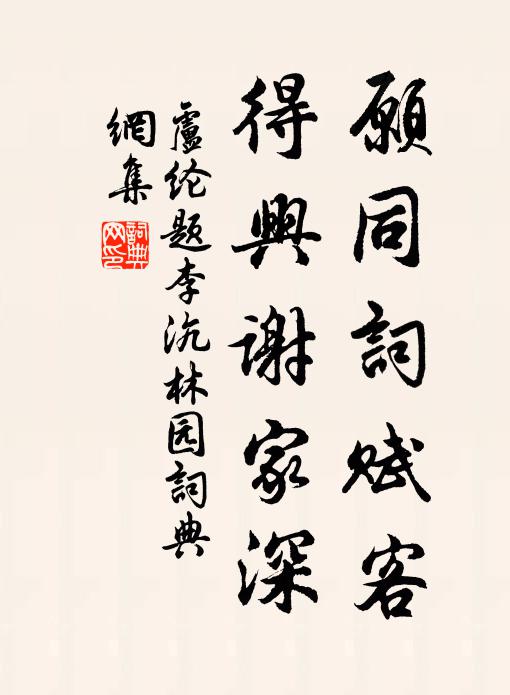 願同詞赋客
得興謝家深
盧纶题李沆林园詞典
網集
詞典
网印